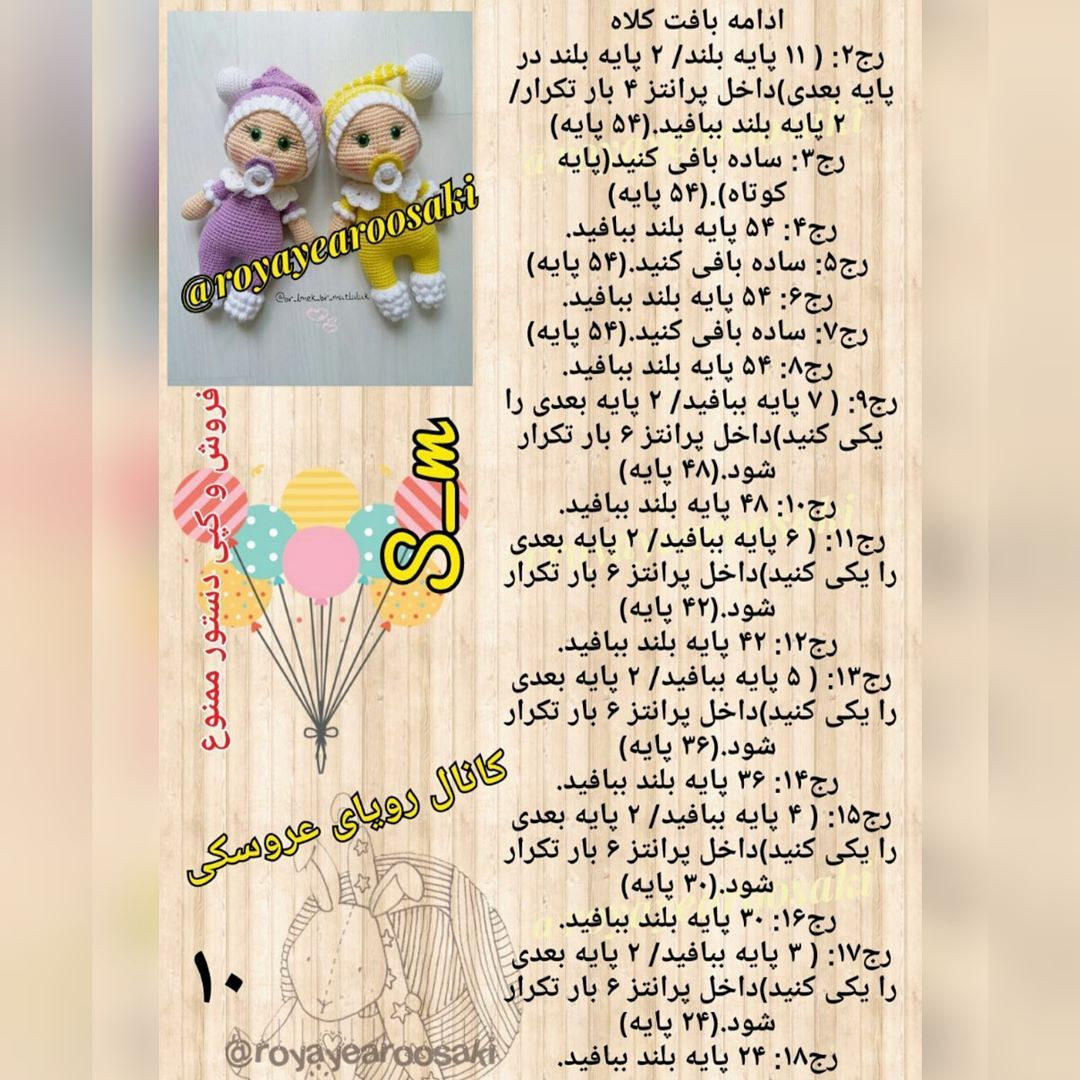 ادامه بافت کلاه
رج۲: ( ۱۱ پایه بلند/ ۲ پایه بلند در
پایه بعدی)داخل پرانتز ۴ بار تکرار/
۲ پایه بلند ببافید.(۵۴ پایه)
رج۳: ساده بافی کنید(پایه
کوتاه).(۵۴ پایه)
رج۴: ۵۴ پایه بلند ببافید.
رج۵: ساده بافی کنید.(۵۴ پایه)
رج۶: ۵۴ پایه بلند ببافید.
رج۷: ساده بافی کنید.(۵۴ پایه)
رج۸: ۵۴ پایه بلند ببافید.
رج۹: ( ۷ پایه ببافید/ ۲ پایه بعدی را
یکی کنید)داخل پرانتز ۶ بار تکرار
شود.(۴۸ پایه)
رج۱۰: ۴۸ پایه بلند ببافید.
رج۱۱: ( ۶ پایه ببافید/ ۲ پایه بعدی
را یکی کنید)داخل پرانتز ۶ بار تکرار
شود.(۴۲ پایه)
رج۱۲: ۴۲ پایه بلند ببافید.
رج۱۳: ( ۵ پایه ببافید/ ۲ پایه بعدی
را یکی کنید)داخل پرانتز ۶ بار تکرار
شود.(۳۶ پایه)
رج۱۴: ۳۶ پایه بلند ببافید.
رج۱۵: ( ۴ پایه ببافید/ ۲ پایه بعدی
را یکی کنید)داخل پرانتز ۶ بار تکرار
شود.(۳۰ پایه)
رج۱۶: ۳۰ پایه بلند ببافید.
رج۱۷: ( ۳ پایه ببافید/ ۲ پایه بعدی
را یکی کنید)داخل پرانتز ۶ بار تکرار
شود.(۲۴ پایه)
رج۱۸: ۲۴ پایه بلند ببافید.
@royayearoosaki
@bir_ilmek_bir_mutluluk
فروش و کپی دستور ممنوع
S_m
کانال رویای عروسکی
۱۰
@royayearoosaki